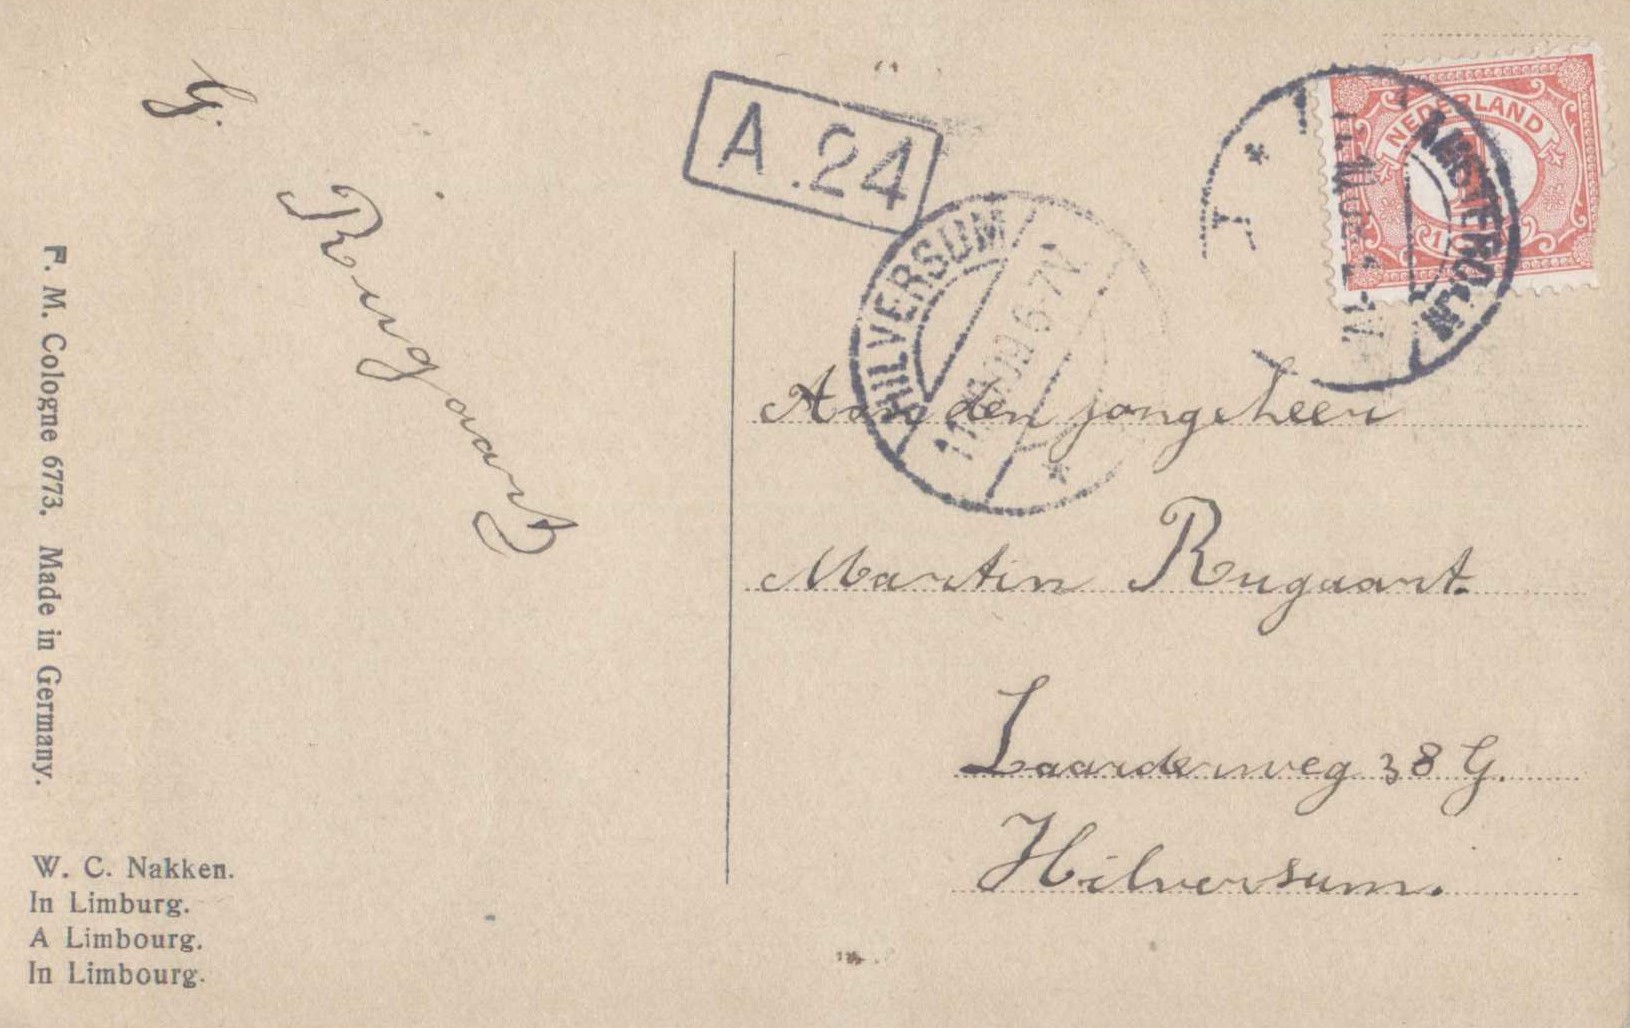 G.
Ringaart
P. M. Cologne 6773. Made in Germany.
W. C. Nakken.
In Limburg.
A Limbourg.
In Limbourg.
A.24
HILVERSUM
6-7N
NEDERLAND
AMSTERDAM
Aan den jongeheer
Martin Rugaart.
Laarderweg 38 G.
Hilversum.